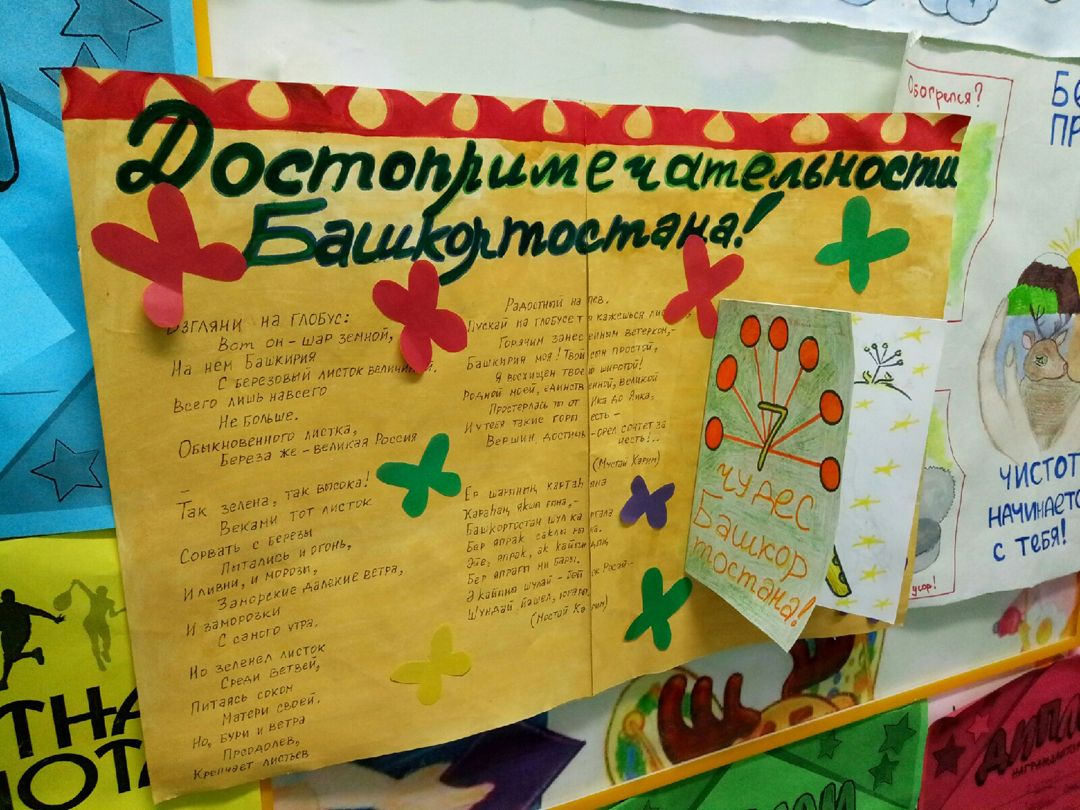 Достопримечательности
Башкортостана!
Взгляни на глобус:
Вот он – шар земной,
На нем Башкирия
С березовый листок величиной.
Всего лишь навсего
Не больше.
Обыкновенного листка,
Береза же – великая Россия
Так зелена, так высока!
Веками тот листок
Сорвать с березы
Пытались и огонь,
И ливни, и морозы,
Заморские далекие ветра,
И заморозки
С самого утра.
Но зеленел листок
Среди ветвей,
Питаясь соком
Матери своей.
Но, бури и ветра
Преодолев,
Крепчает листьев
Радостный напев.
Пускай на глобусе ты кажешься
Горячим занесенным ветерком,–
Башкирия моя! Твой сын простой,
Я восхищен твоею широтой!
Родной моей, единственной, великой
Простерлась ты от Ика до Яика,
И у тебя такие горы есть –
Вершин, достичь орел сочтет за
честь!..
(Мустай Карим)
Ер шарының картаһына
Караһаң, яҡшы
Башҡортостан шул ҡа
Бер япраҡ саҡлы
Эйе, япраҡ, аҡ ҡайын
Бер япрағы ни бары.
Ә ҡайыны шулай – бөйөк Рәсәй –
Шундай йәшел, юғары
(Мостай Кәрим)
7
чудес
Башкор
тостана!
Обогрелся?
БЕ
ПР
ЧИСТОТ
НАЧИНАЕТС
С ТЕБЯ!
усор!
ТНА
НОТА
ДИПЛО
НАГРАЖДАЕТС